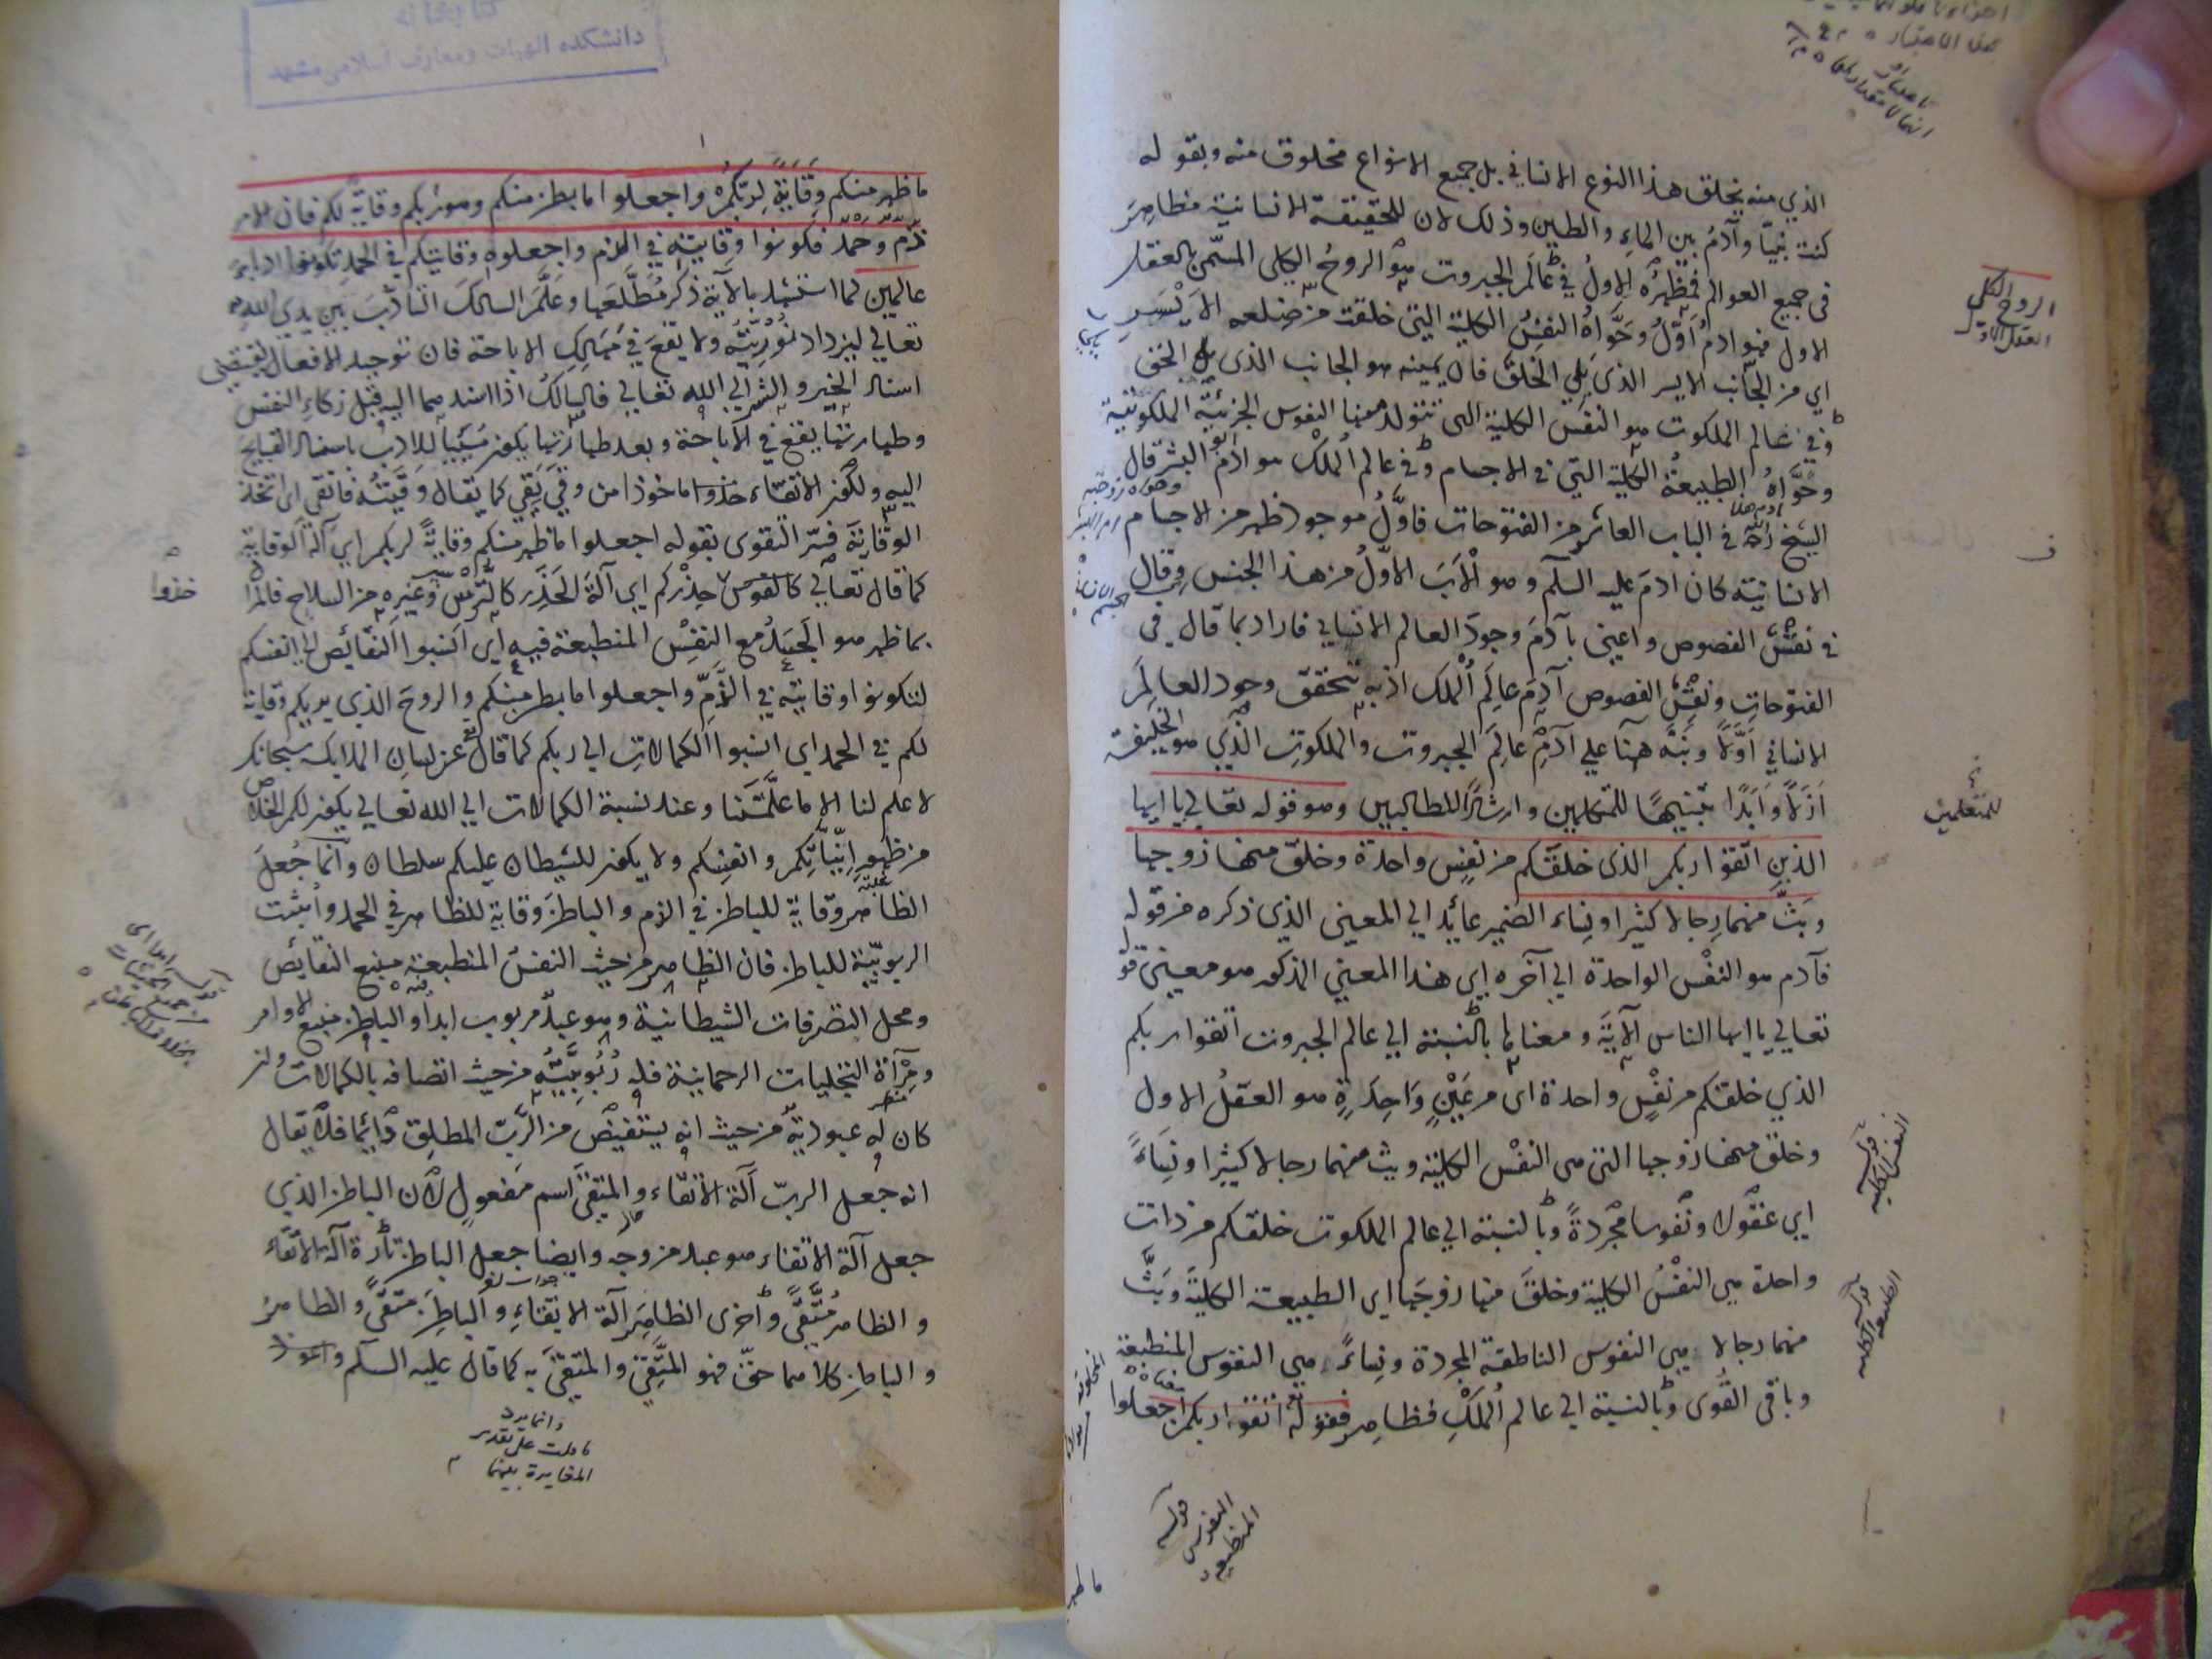 الذي منه يخلق هذا النوع الانساني بل جميع الانواع مخلوق منه وبقوله
كنت نبيّا وآدمُ بين الماءِ والطين وذلك لان للحقيقة الانسانية مظاهرَ
فى جميع العوالم فمظهرُه الاولُ في عالَم الجبروت هو الروحُ الكلى المسمّى بالعقل
الاول فهو ادمُ اَوّلُ وحَوَّاهُ النفسُ الكلية التى خلقت من ضِلعه الاَيْسَرِ
اي من الجانب الايسر الذى يَلِي الخلقَ فان يمينه هو الجانب الذى يلى الحق
وفى عالم الملكوت هو النفسُ الكلية التى تتولد منها النفوس الجزئية الملكوتية
وحَوَّاهُ الطبيعةُ الكلية التى فى الاجسام وفى عالم المُلك هو ادمُ ابو البشر قال
الشيخ رَضى الله فى الباب العاشر من الفتوحات فاوّلُ موجود ظهر من الاجسام
الانسانية كان ادمَ عليه السلام وهو الْاَبَ الاوّلُ من هذا الجنس وقال
فى نقش الفصوص واعنى بآدمَ وجودَ العالم الانساني فاراد بما قال فى
الفتوحاتِ ونقشِ الفصوص آدمَ عالَمِ المُلك اذ به تحقق وجود العالَمِ
الانساني اَوّلاً ونَبَّه هنا على آدمِ عالَمِ الجبروت والملكوت الّذى هو الخليفة
اَزَلاً وَاَبَدًا تنبيهًا للمتعلمين وارشادًا للطالبين وهو قوله تعالى يا ايها
الذين اتقوا ربكم الذى خلقكم من نفسٍ واحدة وخلق منها زوجها
وبَثَّ منهما رجالا كثيرا ونساء الضمير عائد الى المعنى الذي ذكره من قوله
فآدم هو النفْس الواحدة الى آخره اى هذا المعنى المذكور هو معنى قوله
تعالى يا ايها الناس الآيَةَ ومعناها بالنسبة الى عالم الجبروت اتقوا ربكم
الذي خلقكم من نفْسٍ واحدة اى من عَيْنٍ وَاحِدَةٍ هو العقلُ الاول
وخلق منها زوجها التى هى النفْس الكلية وبث منهما رجالا كثيرا ونِسَاءً
اي عقولا ونفوسا مُجَردةً وبالنسبة الى عالم الملكوت خلقكم من ذات
واحدة هى النفْسُ الكلية وخلقَ منها زوجَها اى الطبيعة الكليةَ وبَثَّ
منهما رجالا هى النفوس الناطقة المجردة ونِساءً هى النفوس المنطبعة
وباقى القُوى وبالنسبة الى عالم المُلْكِ فظاهر فقوله اتقوا ربكم اجعلوا
الروح الكلى
العقل الاول
للمتعلمين
قوله
النفس الكلية
قوله
الطبيعة الكلية
قوله
النفوس
المنطبعة
ما ظهر
ما ظهر منكم وِقَايَةً لِرَبِّكُمْ واجعلوا ما بطن منكم وهو ربكم وقايةً لكم فان الامر
ذمّ وحَمْد فكونوا وقايته فى الذم واجعلوه وقايتكم فى الحمد تكونوا ادباءَ
عالمين لما استشهد بالآية ذكر مُطَّلَعَها وعَلَّمَ السالكَ التأدّبَ بين يدى الله
تعالى ليزداد نُوْرِيَّتُه ولا يقعَ فى مَهالِكِ الاباحة فان توحيد الافعال يقتضى
اسناد الخير والشر الى الله تعالى فالسالكُ اذا اسندهما اليه قبْل زكاءِ النفس
وطهارتها يقع فى الاباحة وبعد طهارتها يكون مسيئًا للادبِ باسناد القبائح
اليه ولكون الاتقاء مأخوذا من وَقَى يَقِى كما يقال وَقَيتُه فاتقى اى اتخذ
الوقايَةَ فسّر التقوى بقوله اجعلوا ما ظهر منكم وقايةً لربكم اى آلة الوقاية
كما قال تعالى خذوا حِذْرَكم اى آلةَ الحَذَرِ كالتُّرْسِ وَغيرِه من السلاح فالمرادُ
بما ظهر هو الجَسَدُ مع النفْسِ المنطبعة فيه اى انسبوا النقائص الى انفسكم
لتكونوا وقايته فى الذَّمِّ واجعلوا ما بطن منكم والروحَ الذى يربكم وقاية
لكم فى الحمد اى انسبوا الكمالاتِ الى ربكم كما قال تعالى عن لسانِ الملايكة سبحانك
لا علم لنا الا ما عَلَّمْتَنا وعند نسبة الكمالات الى الله تعالى يكون لكم الخلاص
من ظهور اِنِّيَّاتِكم وانفسِكم ولا يكون للشيطان عليكم سلطان وانما جُعلَ
الظاهر وقاية للباطن فى الذم والباطنَ وقاية للظاهر فى الحمد واُثبتت
الربوبيّة للباطن فان الظاهر من حيث النفسُ المنطبعة منبع النقائص
ومحل التصرفات الشيطانية وهو عبدٌ مربوب ابدا والباطن منبع الانوار
ومرْآة التجليات الرحمانية فله رُبُوبِيَّةٌ من حيث اتصافه بالكمالات وان
كان له عبوديةٌ من حيث انه يستفيض من الرّبّ المطلق دائما فلا يقال
انه جعل الربّ آلةَ الاتقاء والمتقىَ اسم مفعول لان الباطن الذي
جعل آلة الاتقاء هو عبد من وجه وايضا جعل الباطن تارة آلةَ الاتقاء
والظاهر مُتَّقًى واُخرى الظاهرَ آلة الاتقاءِ والباطنَ متقًى والظاهرُ
والباطن كلاهما حقّ فهو المتَّقِى والمتقَى به كما قال عليه السلام واعوذ
خذوا
وانما يرد
ما قلت على تقدير
المغايرة بينهما